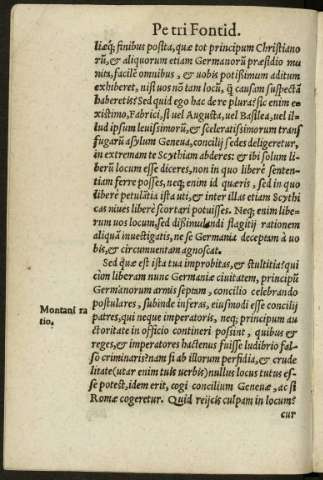 Petri Fontid.
liæq́; finibus posita, quæ tot principum Christiano
rū, & aliquorum etiam Germanorū præsidio mu
nita, facilè omnibus, & uobis potißimum aditum
exhiberet, nisi uos nō tam locū, q̃ causam suspectā
haberetis? Sed quid ego hac de re plura? sic enim ex
xistimo, Fabrici, si uel Augusta, uel Basilea, uel il=
lud ipsum leuißimorū, & sceleratißimorum trans
fugarū asylum Geneua, concilij sedes deligeretur,
in extremam te Scythiam abderes: & ibi solum li=
berū locum esse diceres, non in quo liberè senten=
tiam ferre posses, neq; enim id quæris, sed in quo
liberè petulātia ista uti, & inter illas etiam Scythi
cas niues liberè scortari potuisses. Neq; enim libe=
rum uos locum, sed dißimulandi flagitij rationem
aliquā inuestigatis, ne se Germania deceptam à uo
bis, & circumuentam agnoscat.
Sed quæ est ista tua improbitas, & stultitia? qui
cùm liberam nunc Germaniæ ciuitatem, principū
Germanorum armis septam, concilio celebrando
postulares, subinde inferas, eiusmodi esse concilij
patres, qui neque imperatoris, neq; principum au
ctoritate in officio contineri poßint, quibus &
reges, & imperatores hactenus fuisse ludibrio fal=
sò criminaris? nam si ab illorum perfidia, & crude
litate (utar enim tuis uerbis) nullus locus tutus es=
se potest, idem erit, cogi concilium Geneuæ, ac si
Romæ cogeretur. Quid reijcis culpam in locum?
cur
Montani ra
tio.